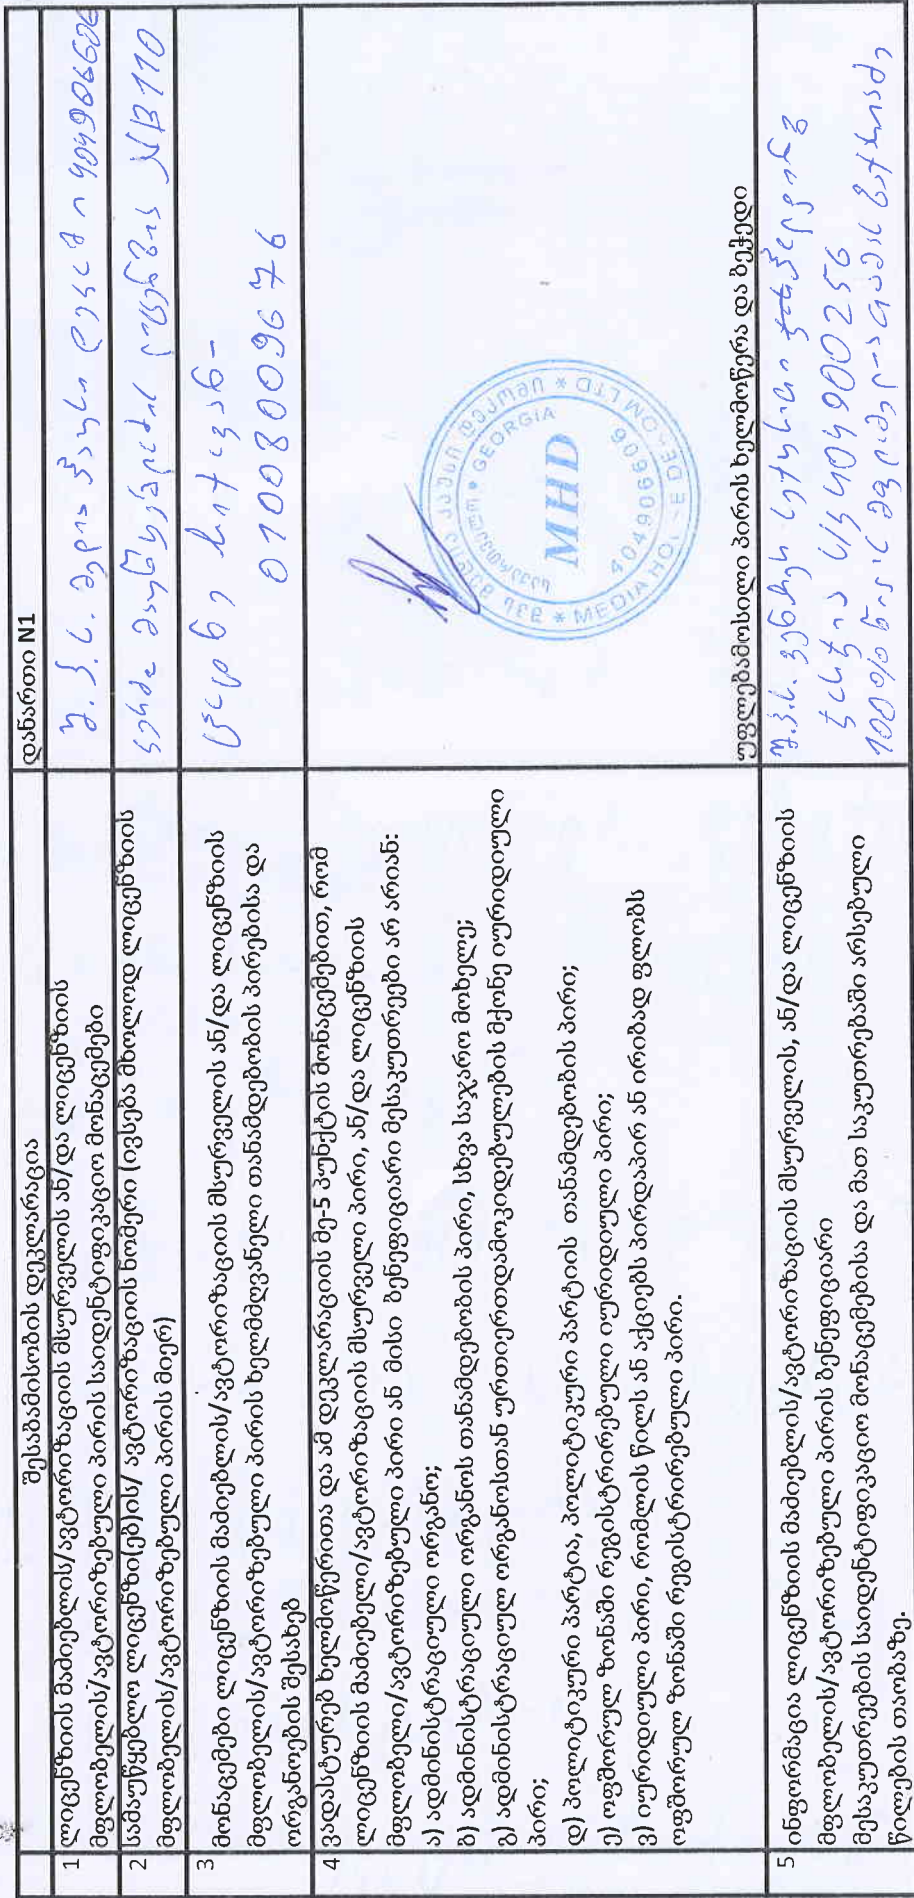 შესაბამისობის დეკლარაცია
დანართი N1
1 ლიცენზიის მაძიებლის/ავტორიზაციის მსურველის ან/და ლიცენზიის
მფლობელის/ავტორიზებული პირის საიდენტიფიკაციო მონაცემები
შ.პ.ს. მედია ჰაუსი დეკომი 404906606
2 სამაუწყებლო ლიცენზი(ებ)ის/ ავტორიზაციის ნომერი (ივსება მხოლოდ ლიცენზიის
მფლობელის/ავტორიზებული პირის მიერ)
კერძო მაუწყებლობის ლიცენზია NB110
3 მონაცემები ლიცენზიის მაძიებლის/ავტორიზაციის მსურველის ან/და ლიცენზიის
მფლობელის/ავტორიზებული პირის ხელმძღვანელი თანამდებობის პირებისა და
ორგანოების შესახებ
01008009676
4 ვადასტურებ ხელმოწერითა და ამ დეკლარაციის მე-5 პუნქტის მონაცემებით, რომ
ლიცენზიის მაძიებელი/ავტორიზაციის მსურველი პირი, ან/და ლიცენზიის
მფლობელი/ავტორიზებული პირი ან მისი ბენეფიციარი მესაკუთრეები არ არიან:
ა) ადმინისტრაციული ორგანო;
ბ) ადმინისტრაციული ორგანოს თანამდებობის პირი, სხვა საჯარო მოხელე;
გ) ადმინისტრაციულ ორგანოსთან ურთიერთდამოკიდებულების მქონე იურიდიული
პირი;
დ) პოლიტიკური პარტია, პოლიტიკური პარტიის თანამდებობის პირი;
ე) ოფშორულ ზონაში რეგისტრირებული იურიდიული პირი;
ვ) იურიდიული პირი, რომლის წილს ან აქციებს პირდაპირ ან ირიბად ფლობს
ოფშორულ ზონაში რეგისტრირებული პირი.
შპს მედია ჰაუსი დეკომი * MEDIA HOUSE DECOM LTD *
საქართველო * GEORGIA
MHD
404906606
უფლებამოსილი პირის ხელმოწერა და ბეჭედი
5 ინფორმაცია ლიცენზიის მაძიებლის/ავტორიზაციის მსურველის, ან/და ლიცენზიის
მფლობელის/ავტორიზებული პირის ბენეფიციარი
მესაკუთრეების საიდენტიფიკაციო მონაცემებისა და მათ საკუთრებაში არსებული
წილების თაობაზე.
შ.პ.ს.
ს/კ 404900256
100% წილის მფლობელი